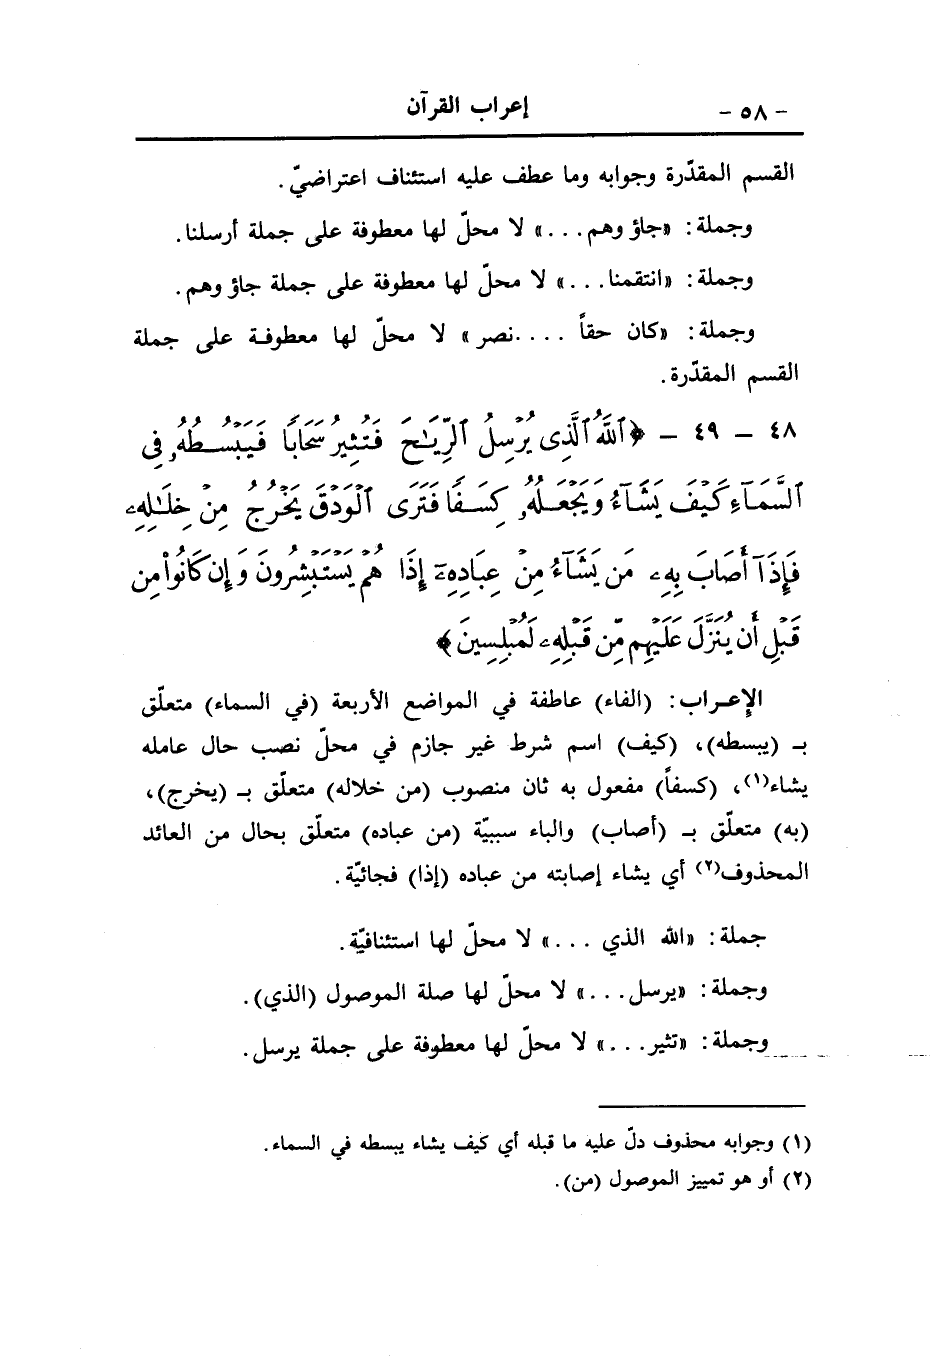 - ٥٨ - إعراب القرآن
القسم المقدّرة وجوابه وما عطف عليه استئناف اعتراضيّ.
وجملة: «جاؤوهم...» لا محلّ لها معطوفة على جملة أرسلنا.
وجملة: «انتقمنا...» لا محلّ لها معطوفة على جملة جاؤوهم.
وجملة: «كان حقاً ....نصر» لا محلّ لها معطوفة على جملة
القسم المقدّرة.
٤٨ - ٤٩ - ﴿ٱللَّهُ ٱلَّذِى يُرْسِلُ ٱلرِّيَٰحَ فَتُثِيرُ سَحَابًا فَيَبْسُطُهُۥ فِى
ٱلسَّمَآءِ كَيْفَ يَشَآءُ وَيَجْعَلُهُۥ كِسَفًا فَتَرَى ٱلْوَدْقَ يَخْرُجُ مِنْ خِلَٰلِهِۦ
فَإِذَآ أَصَابَ بِهِۦ مَن يَشَآءُ مِنْ عِبَادِهِۦٓ إِذَا هُمْ يَسْتَبْشِرُونَ وَإِن كَانُوا۟ مِن
قَبْلِ أَن يُنَزَّلَ عَلَيْهِم مِّن قَبْلِهِۦ لَمُبْلِسِينَ﴾
الإعراب: (الفاء) عاطفة في المواضع الأربعة (في السماء) متعلّق
بـ (يبسطه)، (كيف) اسم شرط غير جازم في محلّ نصب حال عامله
يشاء(١)، (كسفاً) مفعول به ثان منصوب (من خلاله) متعلّق بـ (يخرج)،
(به) متعلّق بـ (أصاب) والباء سببيّة (من عباده) متعلّق بحال من العائد
المحذوف(٢) أي يشاء إصابته من عباده (إذا) فجائيّة.
جملة: «الله الذي ...» لا محلّ لها استئنافيّة.
وجملة: «يرسل...» لا محلّ لها صلة الموصول (الذي).
وجملة: «تثير...» لا محلّ لها معطوفة على جملة يرسل.
(١) وجوابه محذوف دلّ عليه ما قبله أي كيف يشاء يبسطه في السماء.
(٢) أو هو تمييز الموصول (من).